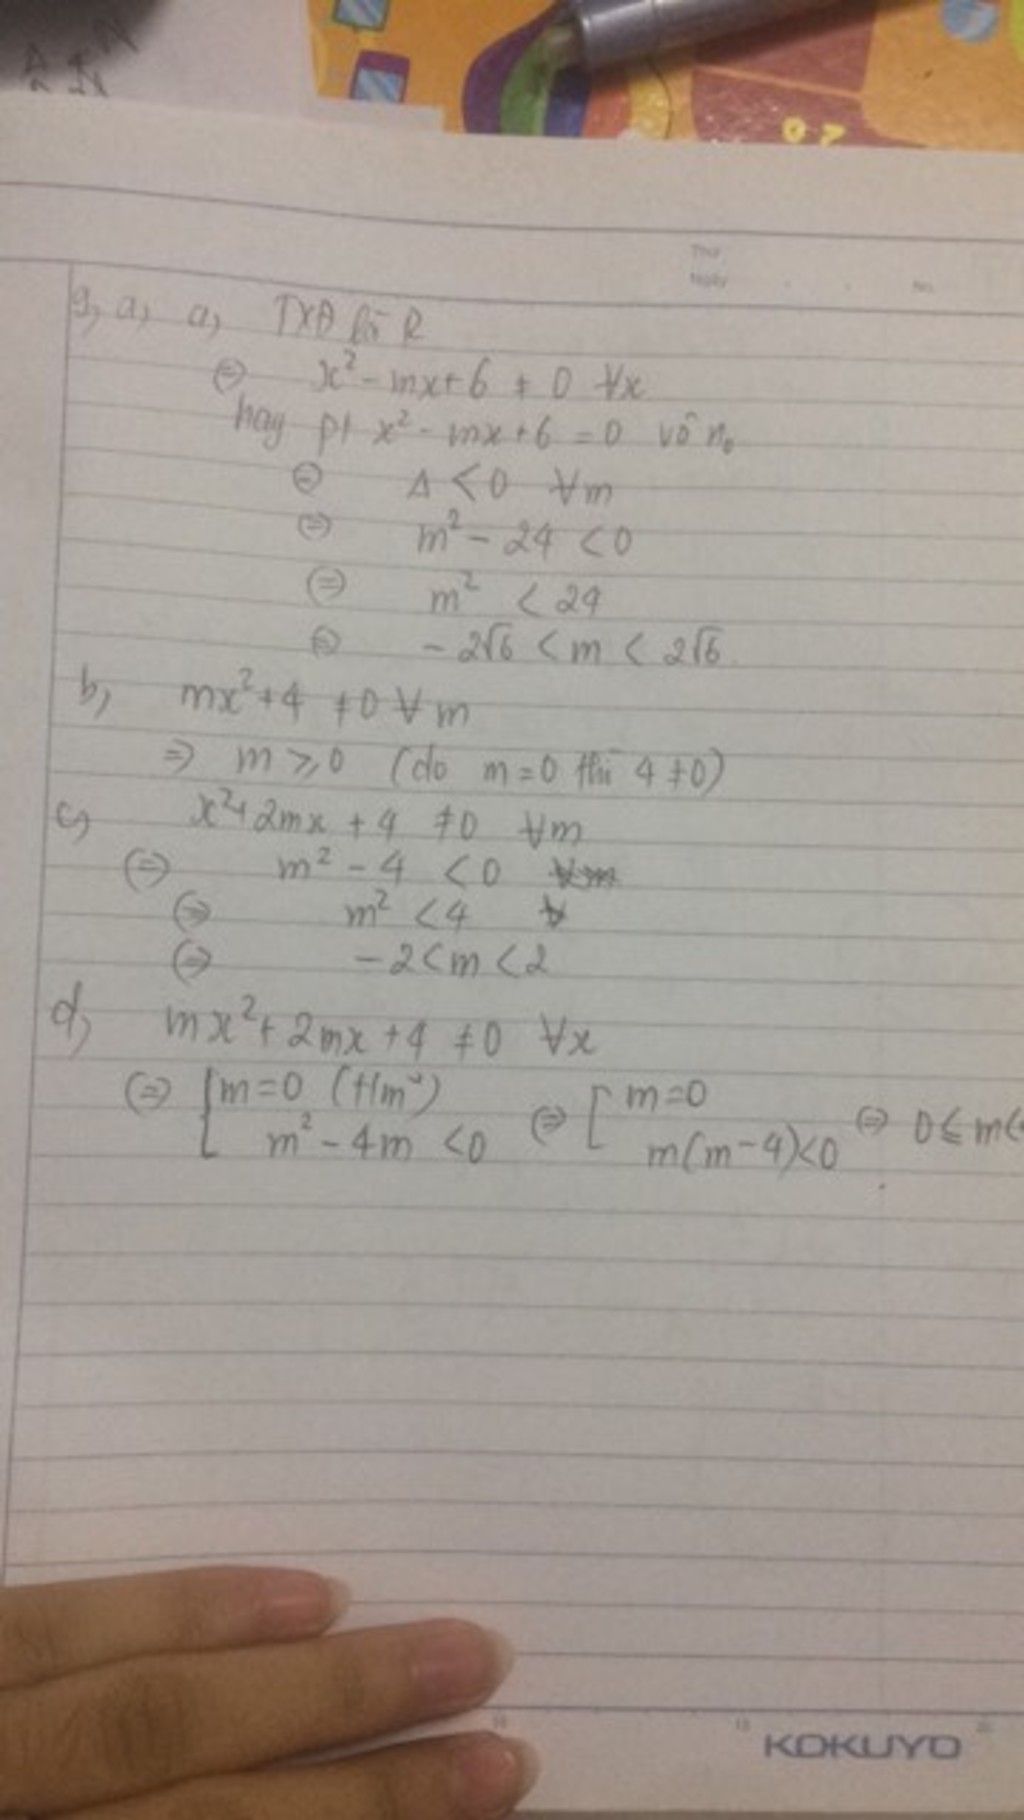 9, a, a, TXĐ là R
⇔ x² - mx + 6 ≠ 0 ∀x
hay pt x² - mx + 6 = 0 vô n₀
⇔ Δ < 0 ∀m
⇔ m² - 24 < 0
⇔ m² < 24
⇔ -2√6 < m < 2√6
b, mx² + 4 ≠ 0 ∀m
⇒ m ⩾ 0 (do m = 0 thì 4 ≠ 0)
c, x² + 2mx + 4 ≠ 0 ∀m
⇔ m² - 4 < 0
⇔ m² < 4
⇔ -2 < m < 2
d, mx² + 2mx + 4 ≠ 0 ∀x
⇔ [ m = 0 (t/m) ⇔ [ m = 0 ⇔ 0 ⩽ m <
m² - 4m < 0 m(m-4) < 0
Thứ
Ngày . . No.
KOKUYO